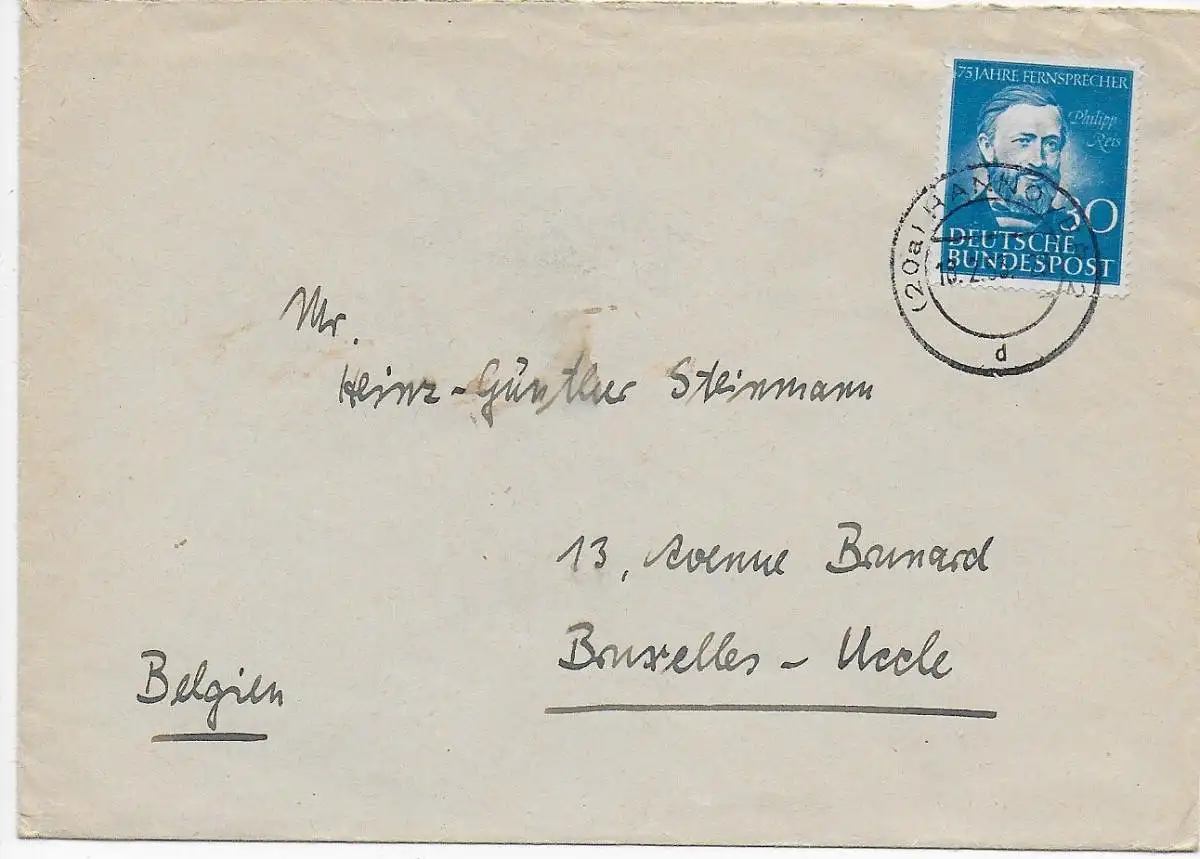 75 JAHRE FERNSPRECHER
Philipp
Reis
30
DEUTSCHE
BUNDESPOST
(20a) HANNOVER
d
Mr.
Heinz-Günther Steinmann
13, Avenue Brunard
Bruxelles - Uccle
Belgien